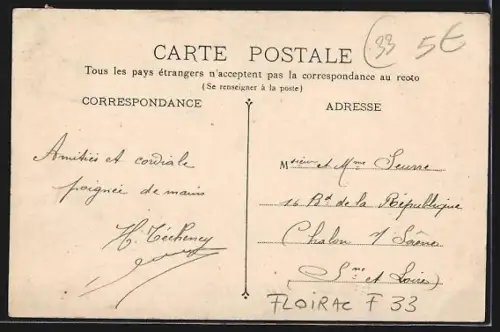 33
5€
CARTE POSTALE
Tous les pays étrangers n'acceptent pas la correspondance au recto
(Se renseigner à la poste)
CORRESPONDANCE
Amitiés et cordiale
poignée de mains
H. Téchency
ADRESSE
Monsieur et Mme Seurre
16 Bd de la République
Chalon s/ Saône
(Sne et Loire)
FLOIRAC F 33